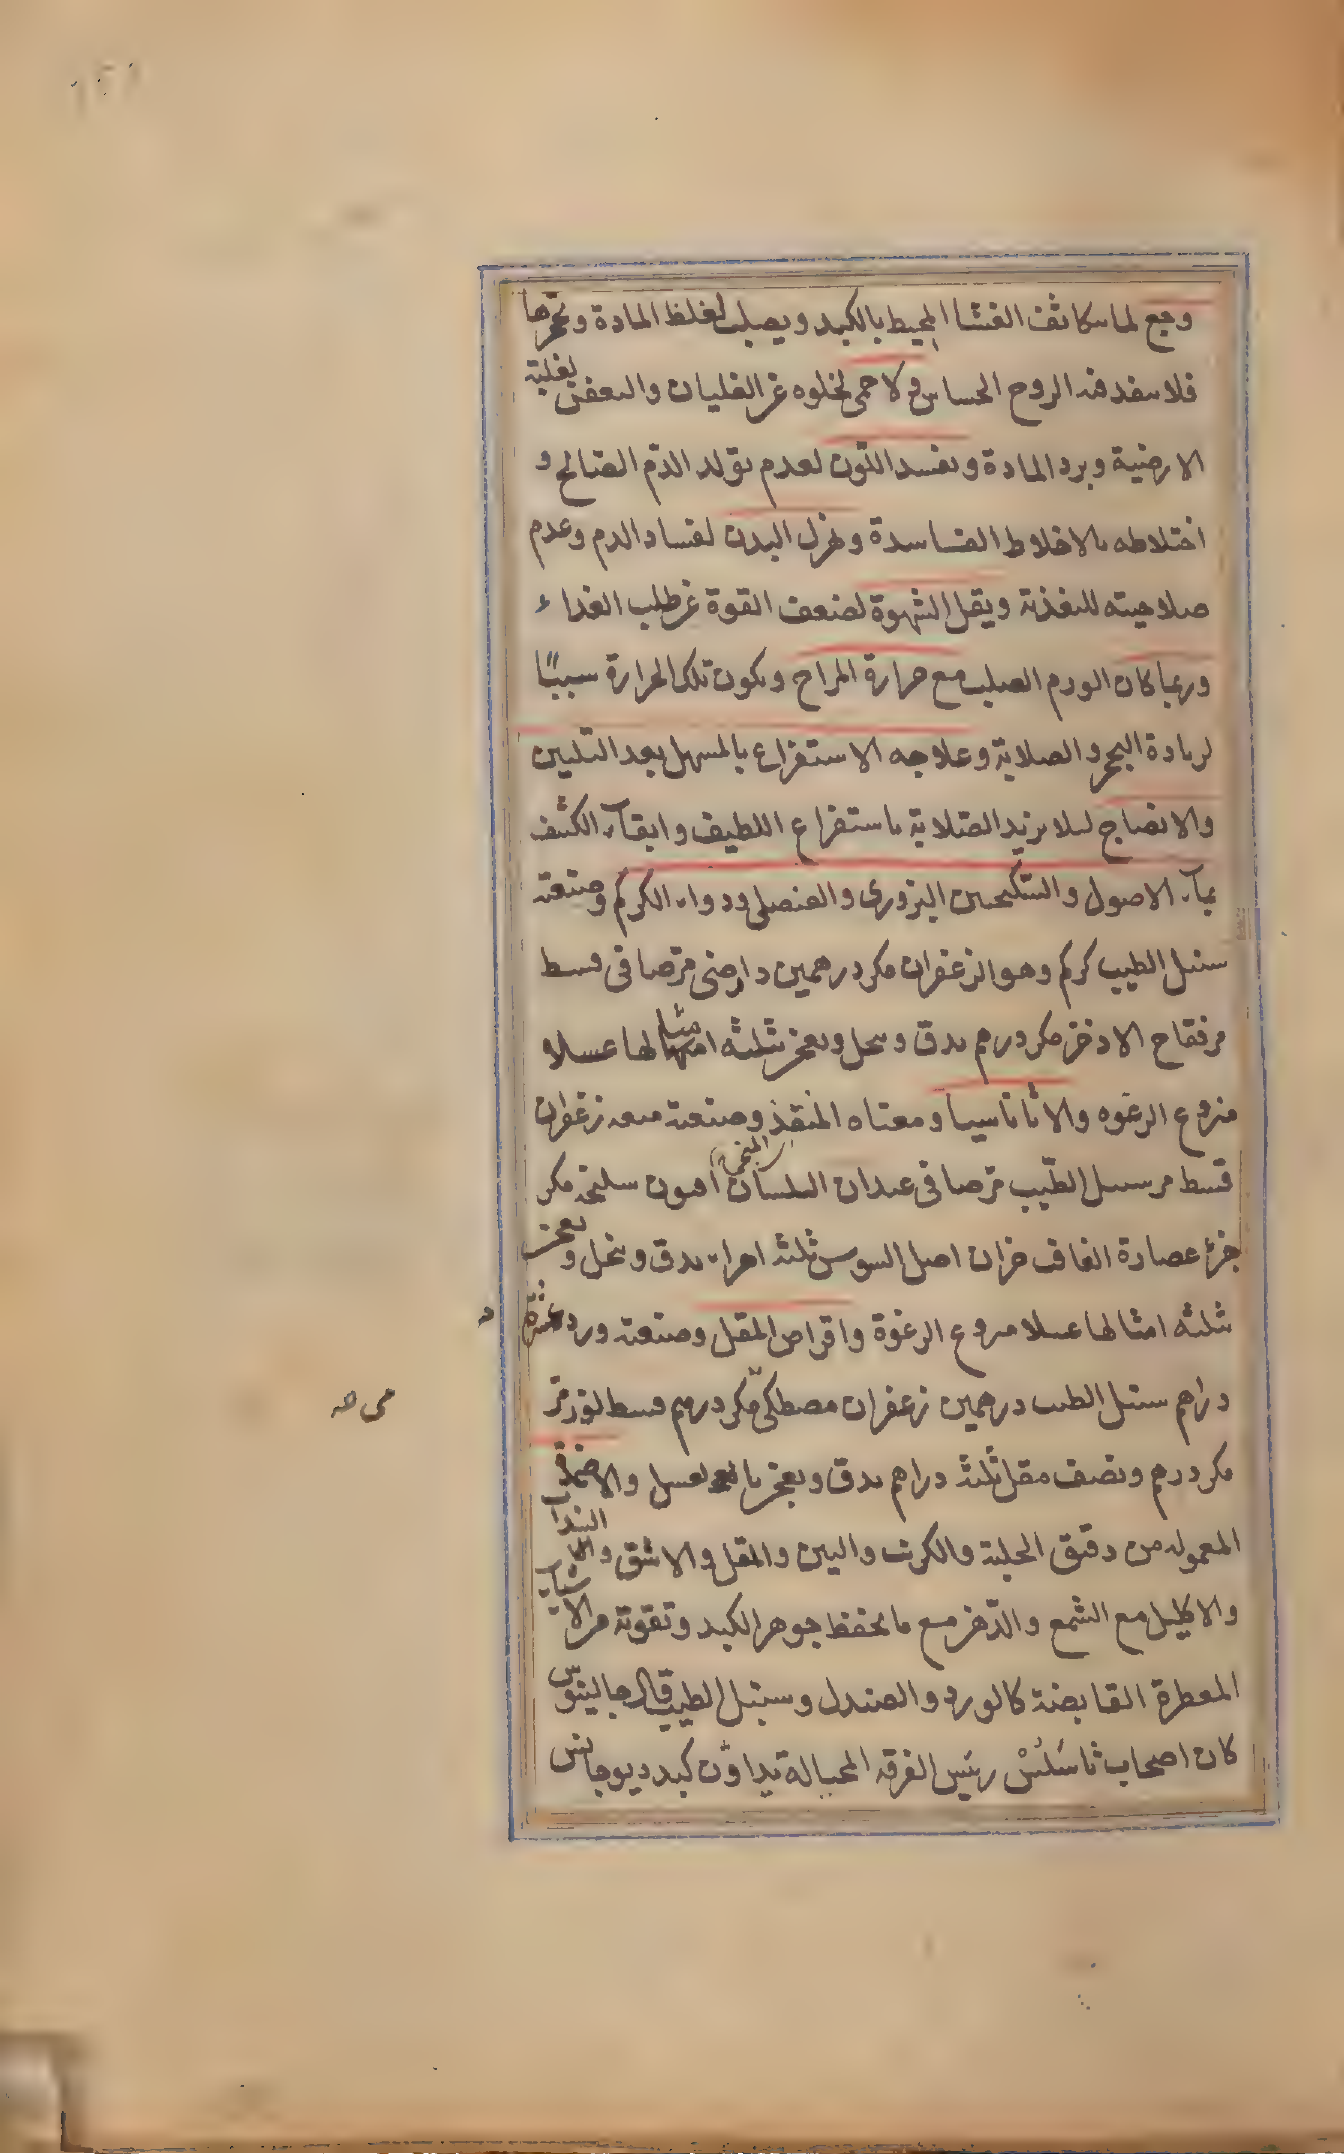 وجع لما يتكاثف الغشا المحيط بالكبد ويصلب لغلظ المادة وتحجرها
فلا ينفذ فيه الروح الحساس ولا حمى لخلوه عن الغليان والتعفن لغلبة
الارضية وبرد المادة ويفسد اللون لعدم تولد الدم الصالح و
اختلاطه بالاخلاط الفاسدة ويهزل البدن لفساد الدم وعدم
صلاحيته للتغذية ويقل الشهوة لضعف القوة عن طلب الغذاء
وربما كان الورم الصلب مع حرارة المزاج ويكون تلك الحرارة سببًا
لزيادة التحجر والصلابة وعلاجه الاستفراغ بالمسهل بعد التليين
والانضاج ليلا يزيد الصلابة باستفراغ اللطيف وابقاء الكثيف
بماء الاصول والسكنجبين البزوري والعنصلي ودواء الكركم وصنعته
سنبل الطيب كركم وهو الزعفران مكد درهمين دارصيني مر صافي قسط
مر فقاح الاذخر مكد درهم يدق وينخل ويعجن بثلثة امثالها عسلا
منزوع الرغوه والاثاناسيا ومعناه المنقذ وصنعته ميعه زعفران
المنجي
قسط مر سنبل الطيب مر صافي عيدان البلسان افيون سليخه مكد
جزء عصارة الغافت جزان اصل السوس ثلثه اجزاء يدق وينخل ويعجن
بثلثه امثالها عسلا منزوع الرغوة واقراص المقل وصنعته ورد عشرة
دراهم سنبل الطيب درهمين زعفران مصطكى مكد درهم قسط لوز مر
مكد درهم ونصف مقل ثلثه دراهم يدق ويعجن بالعسل والاضمدة
المعموله من دقيق الحلبة والكرنب والتين والمقل والاشق
والاكليل مع الشمع والدهن مع ما يحفظ جوهر الكبد وتقوية من الاشياء
المعطرة القابضة كالورد والصندل وسنبل الطيب قال جالينوس
كان اصحاب ثاسلس رئيس الفرقه المحتالة يداوون كبد ديوجانس